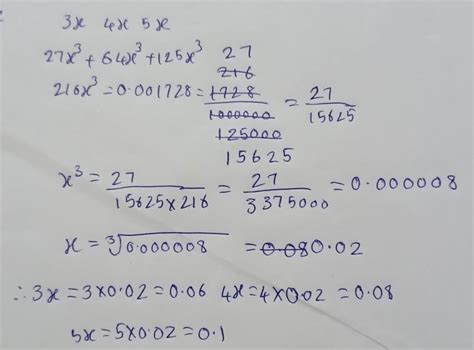 3x 4x 5x
27x³ + 64x³ + 125x³ 27
216
216x³ = 0.001728 = 1728 / 1000000 = 27 / 15625
125000
15625
x³ = 27 / 15625 x 216 = 27 / 3375000 = 0.000008
x = ³√0.000008 = 0.080.02
∴ 3x = 3x0.02 = 0.06 4x = 4x0.02 = 0.08
5x = 5x0.02 = 0.1